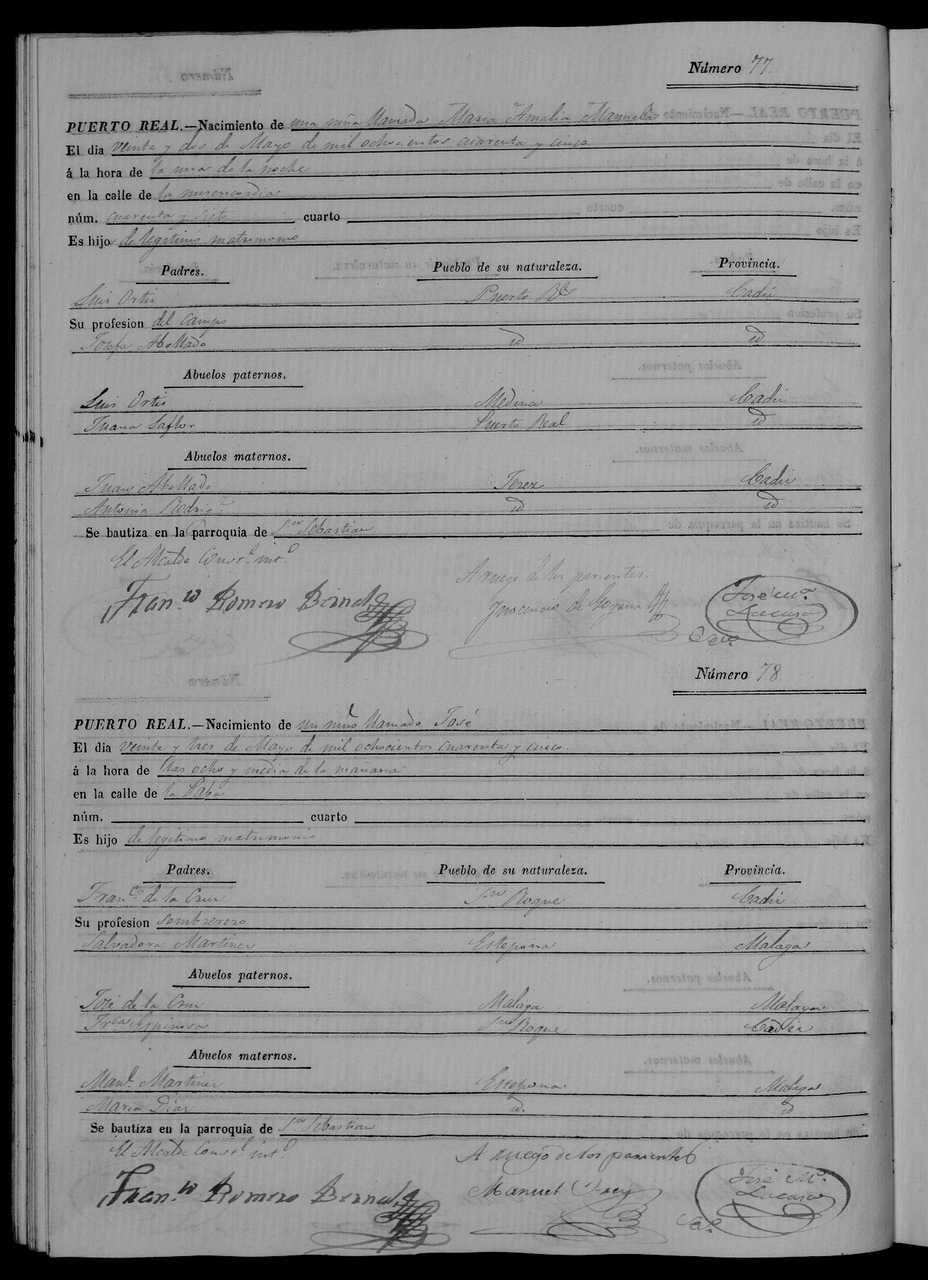 Número 77.
PUERTO REAL.—Nacimiento de una niña llamada Maria Amalia Manuela
El dia veinte y dos de Mayo de mil ochocientos cuarenta y cinco
á la hora de la una de la noche
en la calle de la misericordia
núm. cuarenta y siete cuarto
Es hijo de legitimo matrimonio
Padres. Pueblo de su naturaleza. Provincia.
Luis Ortis Puerto Rl Cadiz
Su profesion del campo
Josefa id id
Abuelos paternos.
Luis Ortis Medina Cadiz
Juana Puerto Real id
Abuelos maternos.
Juan Jerez Cadiz
Antonia Rodrig.z id id
Se bautiza en la parroquia de Sn Sebastian
El Alcalde Const.l int.o
Fran.co Romero Bernal
A ruego de los parientes.
Inocencio de
José M.a
Número 78
PUERTO REAL.—Nacimiento de un niño llamado José
El dia veinte y tres de Mayo de mil ochocientos cuarenta y cinco
á la hora de las ocho y media de la mañana
en la calle de la
núm. cuarto
Es hijo de legitimo matrimonio
Padres. Pueblo de su naturaleza. Provincia.
Fran.co de la Cruz Sn Roque Cadiz
Su profesion Sombrerero
Salvadora Martinez Estepona Malaga
Abuelos paternos.
José de la Cruz Malaga Malaga
Fr.ca Espinosa Sn Roque Cadiz
Abuelos maternos.
Man.l Martinez Estepona Malaga
Maria Diaz id. id
Se bautiza en la parroquia de Sn Sebastian
El Alcalde Const.l int.o
Fran.co Romero Bernal
A ruego de los parientes
Manuel
José M.a